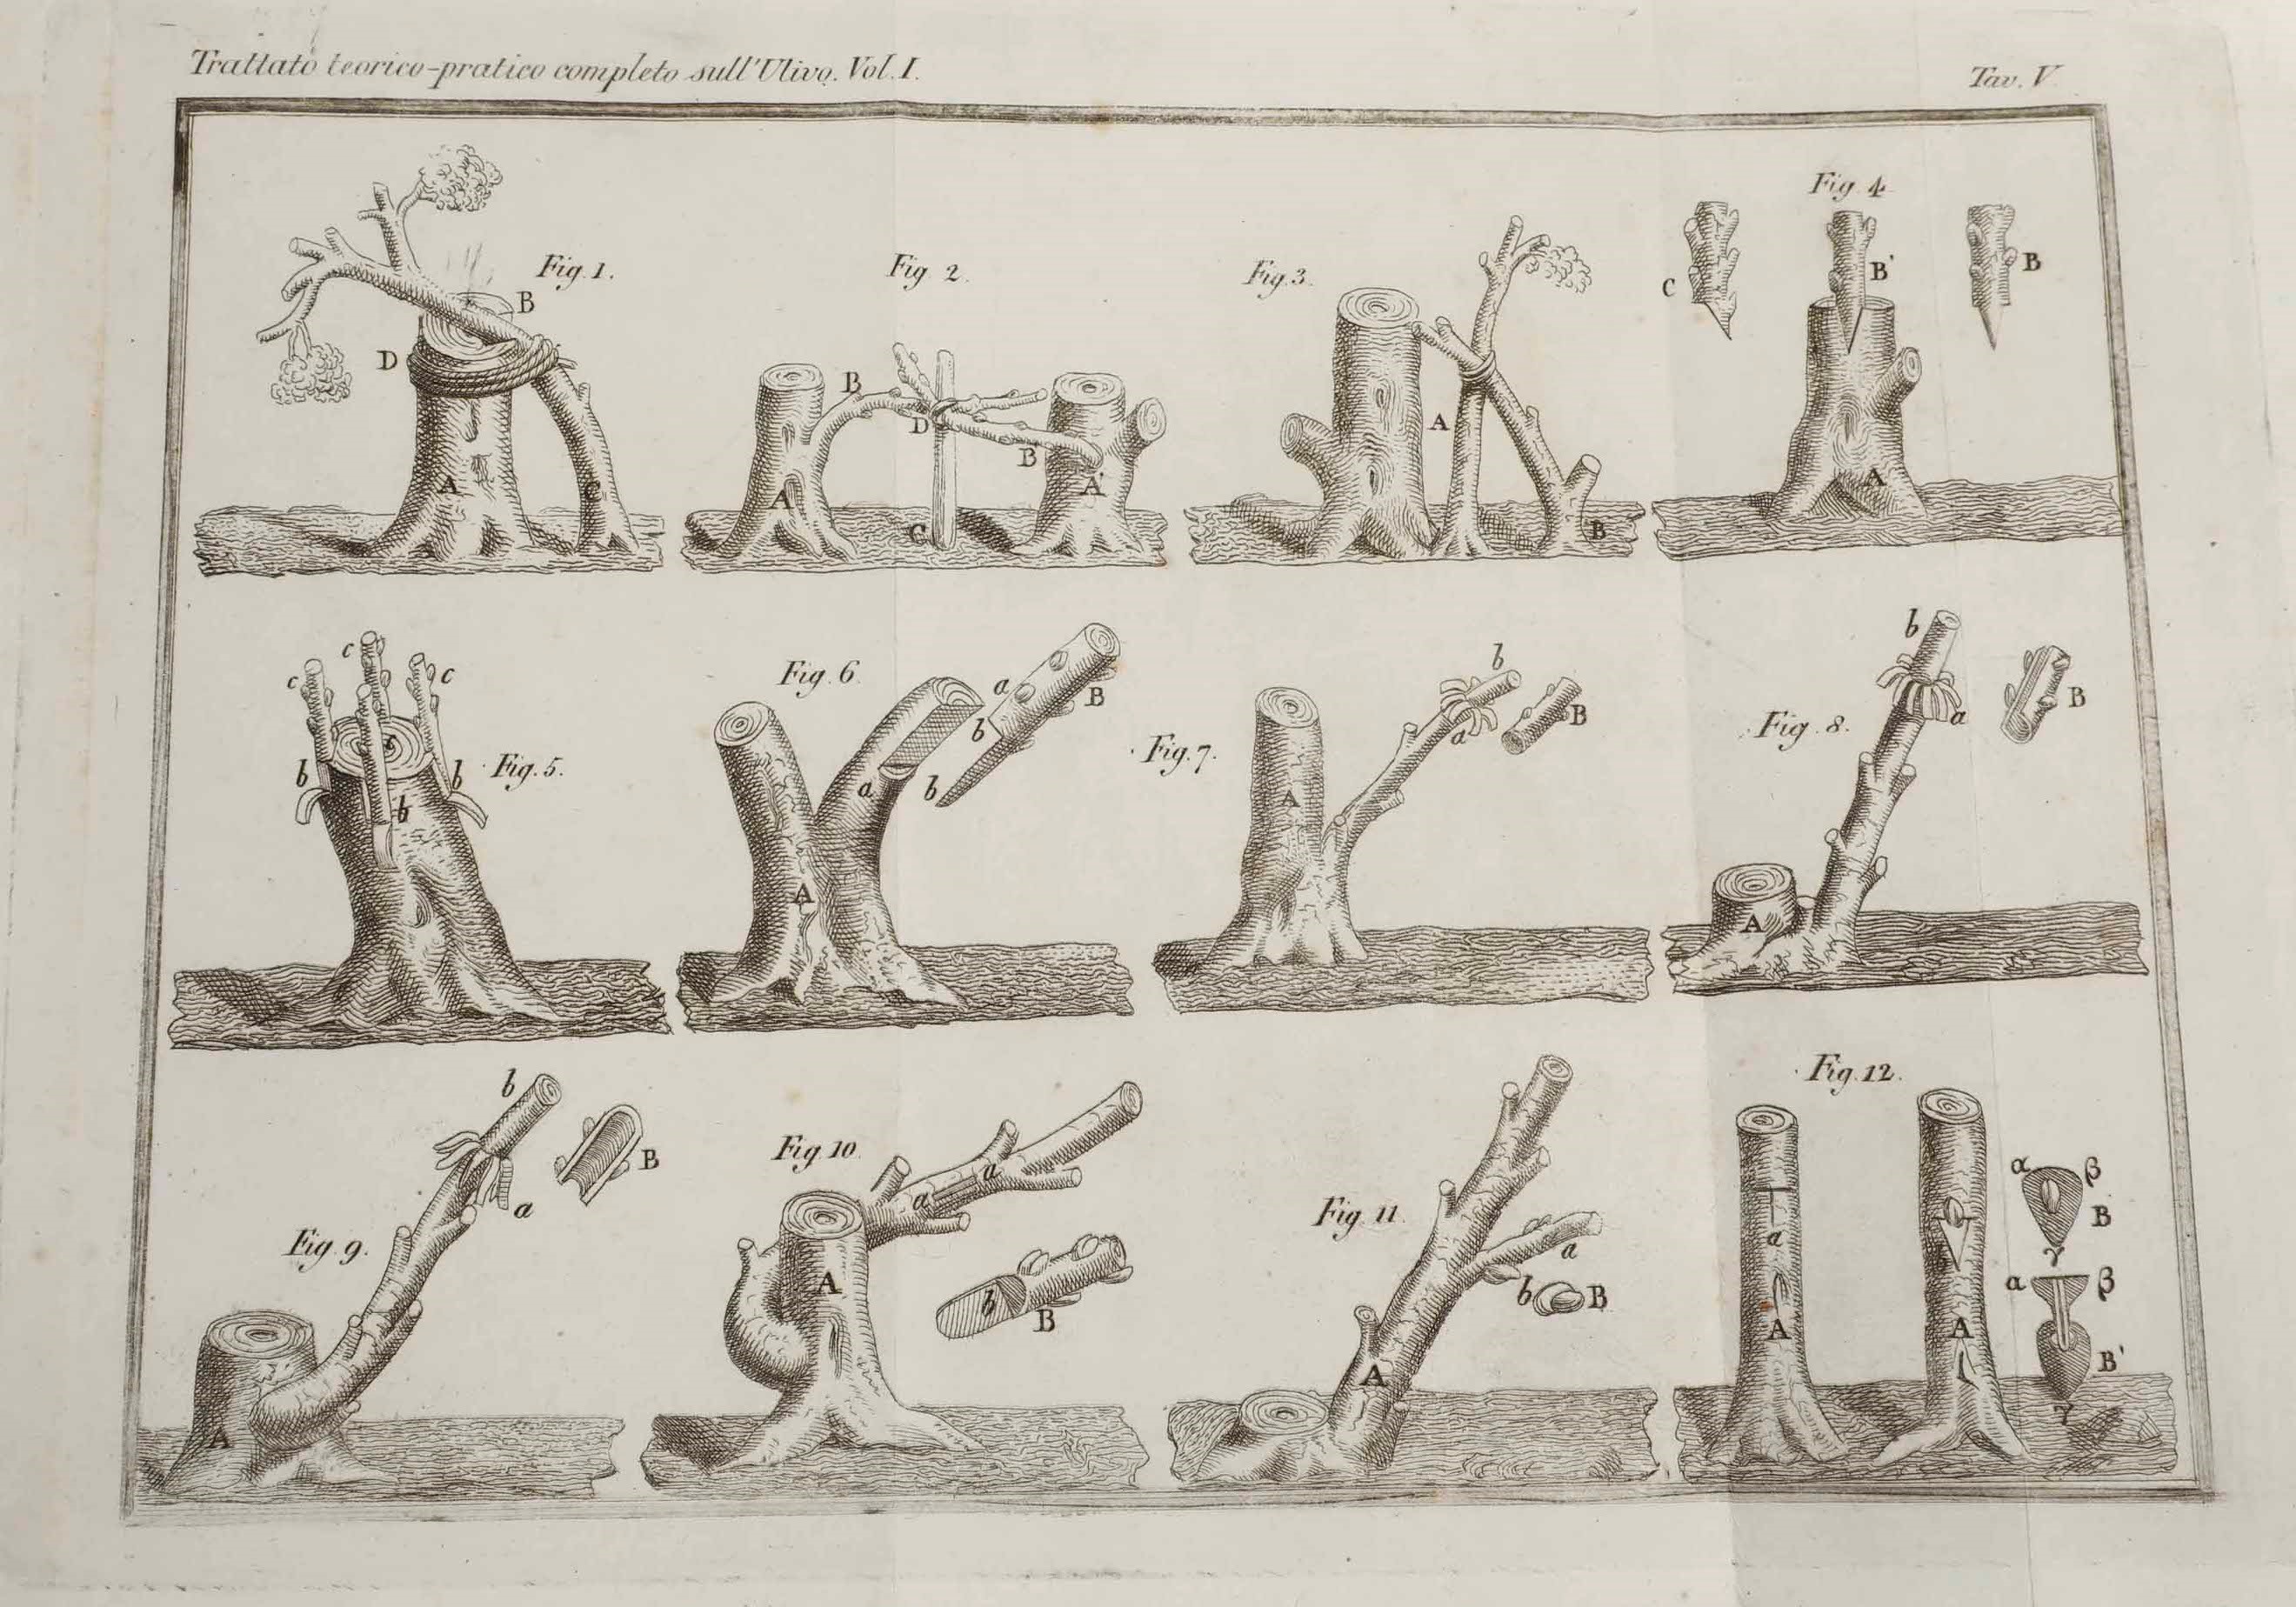 Trattato teorico-pratico completo sull'Ulivo. Vol. I.
Tav. V
Fig. 1.
B
D
A
C
Fig. 2.
B
D
B
A
A'
C
Fig. 3.
A
B
Fig. 4
C
B'
B
A
c
c
c
b
b
b
Fig. 5.
Fig. 6
a
b
B
a
b
A
Fig. 7.
b
a
B
A
Fig. 8.
b
a
B
A
Fig. 9.
b
a
B
A
Fig. 10
a
a
A
b
B
Fig. 11.
a
b
B
A
Fig. 12.
a
A
A
α
β
B
γ
α
β
B'
γ